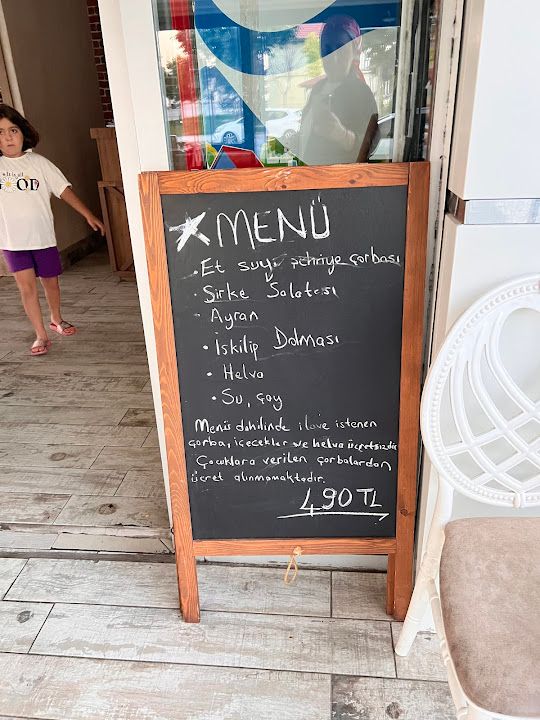 MENÜ
. Et suyu şehriye çorbası
. Şirke Salatası
. Ayran
. İskilip Dolması
. Helva
. Su, çay
Menü dahilinde ilave istenen
çorba, içecekler ve helva ücretsizdir
Çocuklara verilen çorbalardan
ücret alınmamaktadır.
490 TL